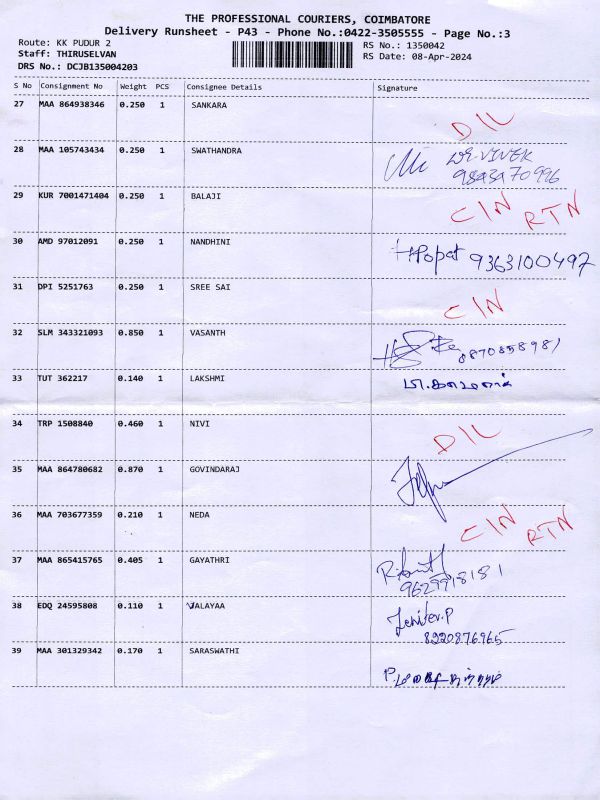 THE PROFESSIONAL COURIERS, COIMBATORE
Delivery Runsheet - P43 - Phone No.:0422-3505555 - Page No.:3
Route: KK PUDUR 2
Staff: THIRUSELVAN
DRS No.: DCJB135004203
RS No.: 1350042
RS Date: 08-Apr-2024
S No Consignment No Weight PCS Consignee Details Signature
27 MAA 864938346 0.250 1 SANKARA
DIL
28 MAA 105743434 0.250 1 SWATHANDRA
VIVEK
29 KUR 7001471404 0.250 1 BALAJI
CIN RTN
30 AMD 97012091 0.250 1 NANDHINI
Popat 9363100497
31 DPI 5251763 0.250 1 SREE SAI
CIN
32 SLM 343321093 0.850 1 VASANTH
8870858981
33 TUT 362217 0.140 1 LAKSHMI
34 TRP 1508840 0.460 1 NIVI
DIL
35 MAA 864780682 0.870 1 GOVINDARAJ
36 MAA 703677359 0.210 1 NEDA
CIN RTN
37 MAA 865415765 0.405 1 GAYATHRI
9629918181
38 EDQ 24595808 0.110 1 JALAYAA
Jenifer.P
8220876965
39 MAA 301329342 0.170 1 SARASWATHI